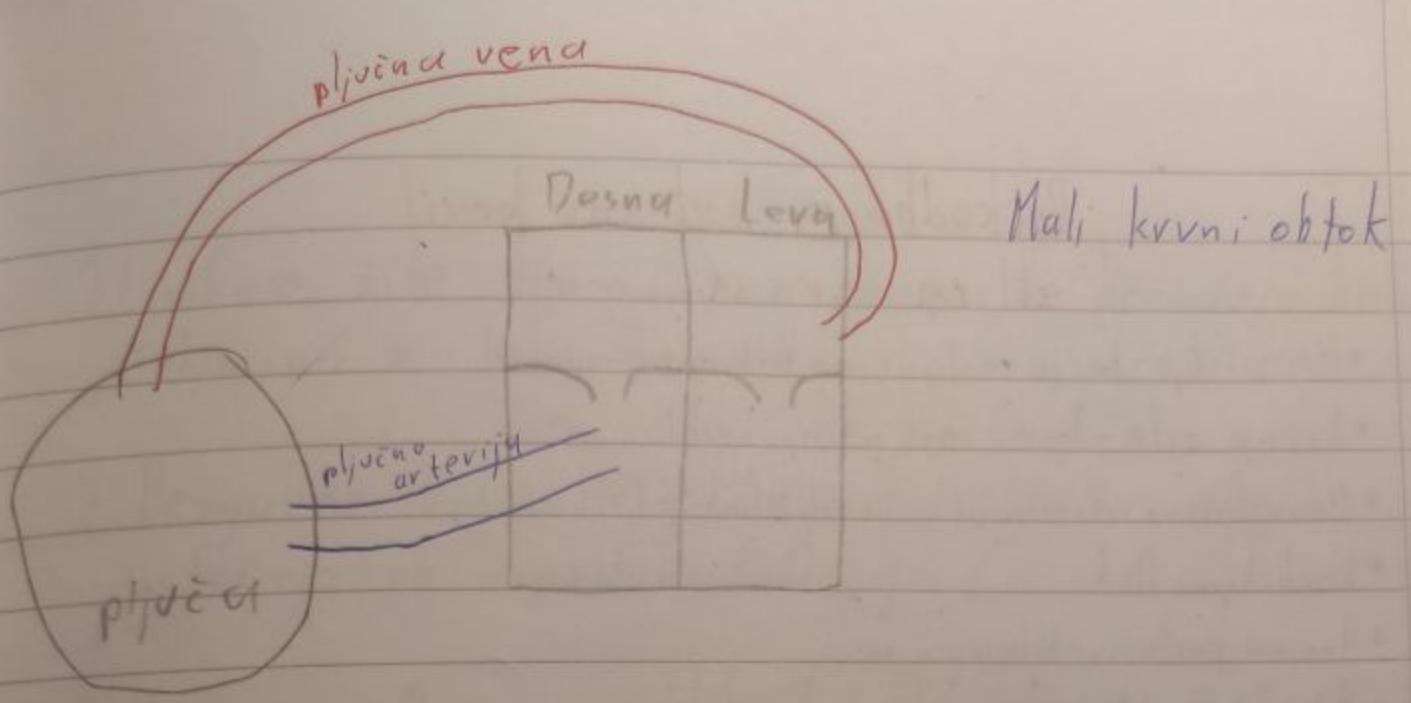 pljučna vena
Desna Leva
Mali krvni obtok
pljučna
arterija
pljuča